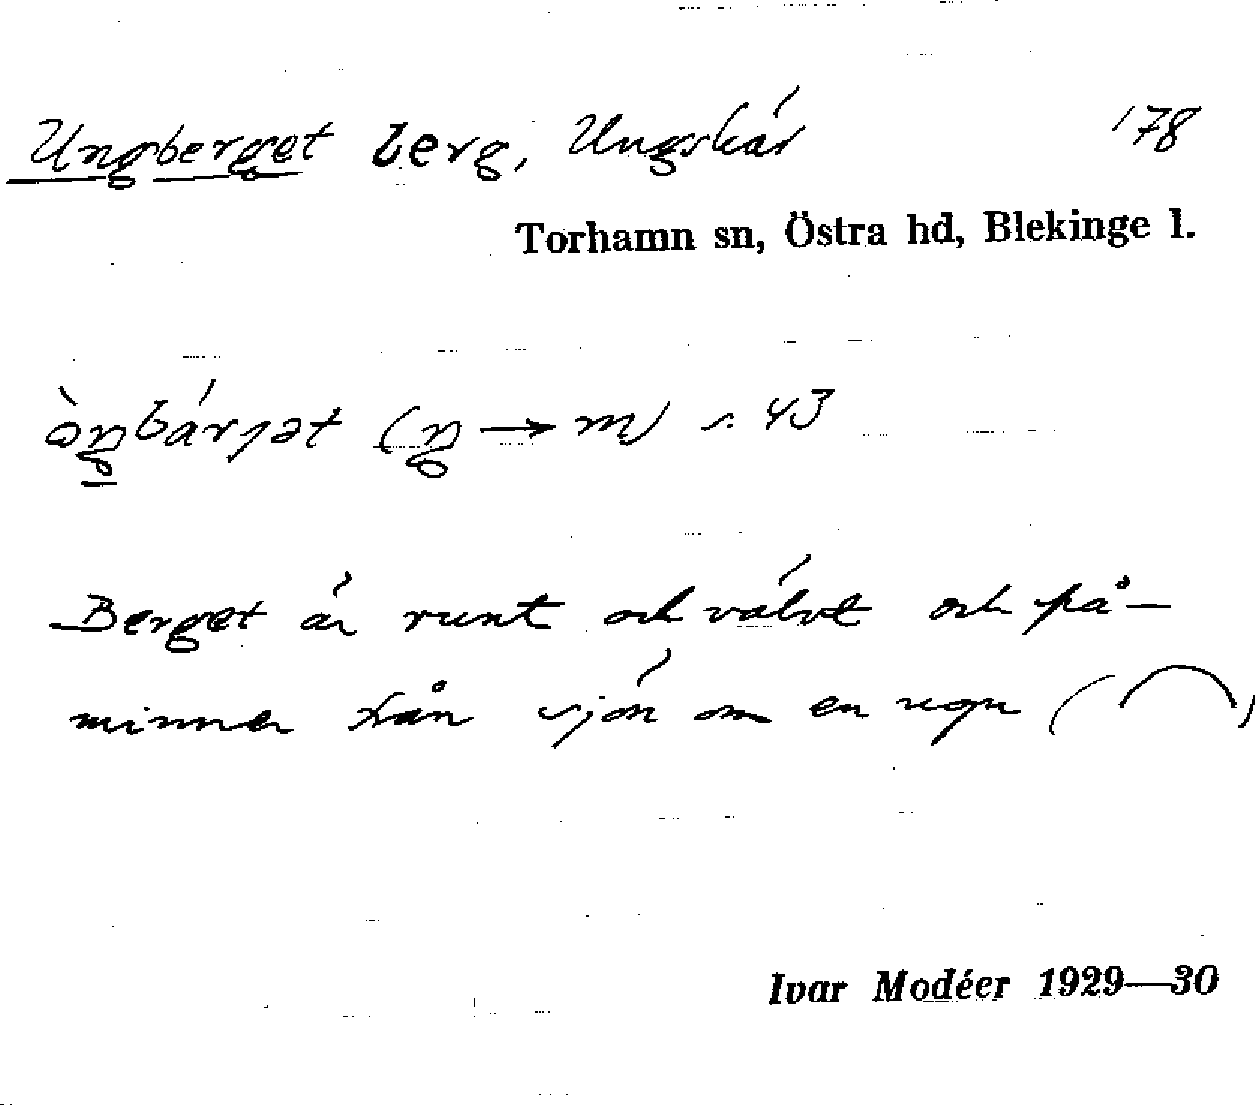 Ungberget berg, Ungskär 178
Torhamn sn, Östra hd, Blekinge l.
(ŋ → m) s. 43
Berget är runt och välvt och på-
minner från sjön om en ugn ( )
Ivar Modéer 1929—30